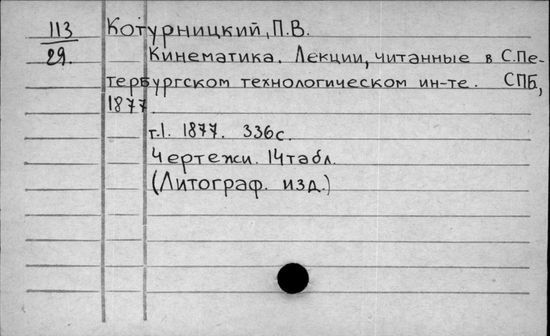 113 Котурницкий, П.В.
29. Кинематика. Лекции, читанные в С.Пе-
тербургском технологическом ин-те. СПБ,
1877.
т.1. 1877. 336с.
Чертежи. 14табл.
(Литограф. изд.)